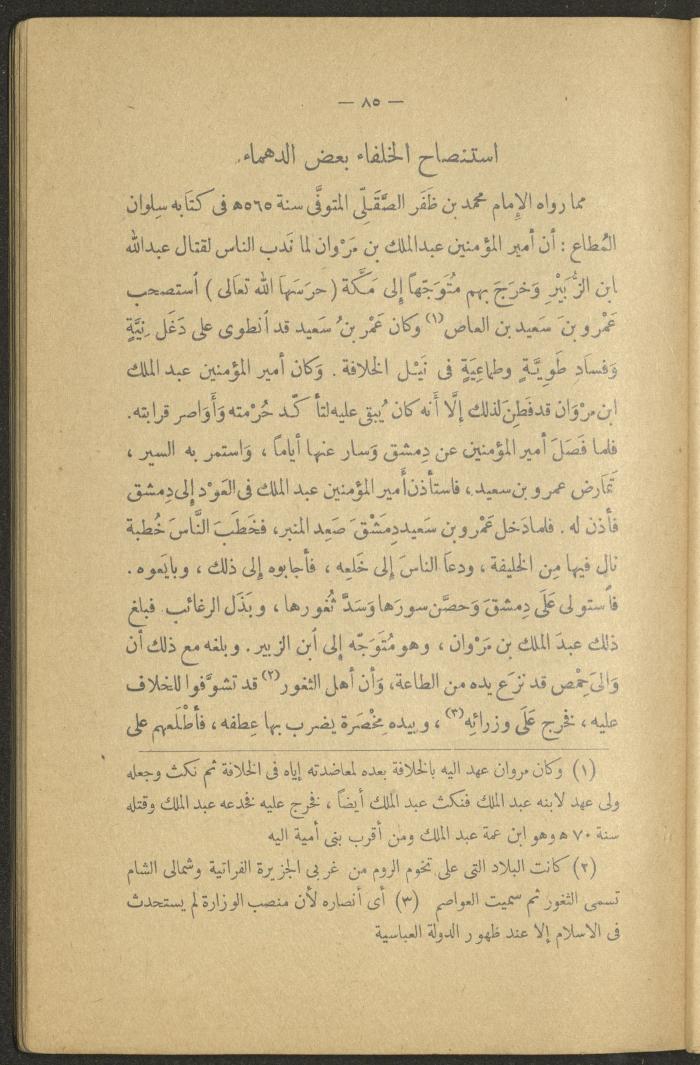 — ٨٥ —
استنصاح الخلفاء بعض الدهماء
مما رواه الإمام محمد بن ظَفَر الصَّقَلّى المتوفَّى سنة ٥٦٥ﻫ فى كتابه سلوان
المُطاع : أن أمير المؤمنين عبدالملك بن مَرْوان لما نَدب الناس لقتال عبدالله
ابن الزُّبَيْر وَخرَجَ بهم مُتَوَجّهاً إلى مَكَّة ( حرَسَهَا الله تعَالى ) أستصحب
عَمْرو بنَ سَعيد بن العاص (١) وكان عَمْر بنُ سَعيد قد أنطوى على دَغَل نِيَّةٍ
وَفسادِ طَوِيَّةٍ وطماعِيَةٍ فى نَيْل الخلافة . وَكان أمير المؤمنين عبد الملك
ابن مرْوَان قد فَطِنَ لذلك إلَّا أَنه كان يُبقى عليه لتأكّد حُرْمته وَأَوَاصر قرابته.
فلما فَصَلَ أمير المؤمنين عن دِمشق وَسار عنها أياماً ، وَاستمر به السير ،
تَمَارض عمرو بن سعيد، فاستأذن أَمير المؤمنين عبد الملك فى العَوْد إلى دِمشق
فأذن له . فلما دَخل عَمْرو بن سَعيد دِمَشْقَ صَعِد المنبر، فخَطَبَ النَّاسَ خُطبة
نال فيها مِن الخليفة ، ودعاَ الناسَ إلى خَلعِه ، فأجابوه إلى ذلك ، وبايَعوه .
فأستولى عَلَى دِمشقَ وَحصَّن سورَها وَسَدَّ ثُغورها ، وبَذَل الرغائب فبلغ
ذلك عبدَ الملك بن مَرْوان ، وهو مُتَوَجّه إلى أبن الزبير . وبلغه مع ذلك أن
وَالىَ حِمْص قد نزَع يده من الطاعة، وَأن أهل الثغور (٢) قد تشوَّفوا للخلاف
عليه ، فخرج عَلَى وزرائِه (٣) ، وبيده مِخْصَرة يضرب بها عِطفه ، فأطْلَعهم على
(١) وكان مروان عهد اليه بالخلافة بعده لمعاضدته إياه فى الخلافة ثم نكث وجعله
ولى عهد لابنه عبد الملك فنكث عبد الملك أيضاً ، فخرج عليه فخدعه عبد الملك وقتله
سنة ٧٠ ﻫ وهو ابن عمة عبد الملك ومن أقرب بنى أمية اليه
(٢) كانت البلاد التى على تخوم الروم من غربى الجزيرة الفراتية وشمالى الشام
تسمى الثغور ثم سميت العواصم (٣) أى أنصاره لأن منصب الوزارة لم يستحدث
فى الاسلام إلا عند ظهور الدولة العباسية